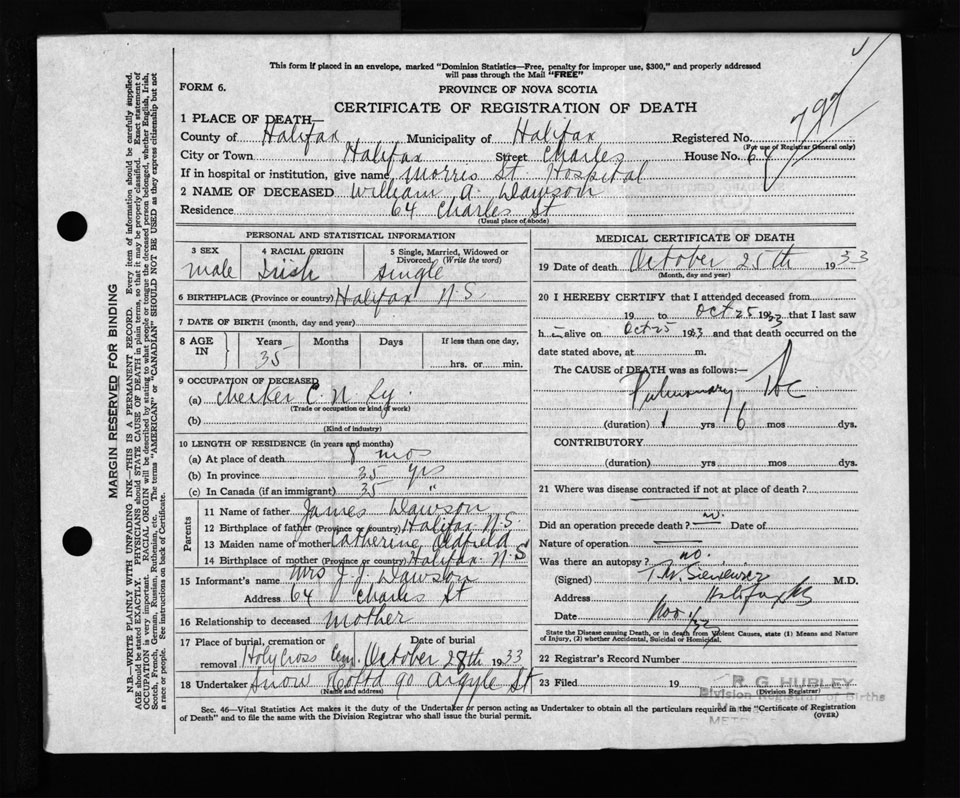 This form if placed in an envelope, marked "Dominion Statistics—Free, penalty for improper use, $300," and properly addressed
will pass through the Mail "FREE"
FORM 6.
PROVINCE OF NOVA SCOTIA
CERTIFICATE OF REGISTRATION OF DEATH
797
1 PLACE OF DEATH—
County of Halifax Municipality of Halifax Registered No.
(For use of Registrar General only)
City or Town Halifax Street Charles House No. 64
If in hospital or institution, give name Morris St. Hospital
2 NAME OF DECEASED William A. Dawson
Residence 64 Charles St
(Usual place of abode)
PERSONAL AND STATISTICAL INFORMATION
3 SEX 4 RACIAL ORIGIN 5 Single, Married, Widowed or Divorced, (Write the word)
male Irish single
6 BIRTHPLACE (Province or country) Halifax N.S.
7 DATE OF BIRTH (month, day and year)
8 AGE IN Years Months Days If less than one day,
35 hrs. or min.
9 OCCUPATION OF DECEASED
(a) Checker C. N. Ry.
(Trade or occupation or kind of work)
(b)
(Kind of industry)
10 LENGTH OF RESIDENCE (in years and months)
(a) At place of death 8 mos
(b) In province 35 yrs
(c) In Canada (if an immigrant) 35 "
Parents
11 Name of father James Dawson
12 Birthplace of father (Province or country) Halifax N.S.
13 Maiden name of mother Catherine Oldfield
14 Birthplace of mother (Province or country) Halifax N.S
15 Informant's name Mrs J. J. Dawson
Address 64 Charles St
16 Relationship to deceased mother
17 Place of burial, cremation or removal Holy Cross Cem. Date of burial October 28th 1933
18 Undertaker Snow & Co Ltd 90 Argyle St
(Name and address)
MEDICAL CERTIFICATE OF DEATH
19 Date of death October 25th 1933
(Month, day and year)
20 I HEREBY CERTIFY that I attended deceased from
19 to Oct 25 1933 that I last saw
h alive on Oct 25 1933 and that death occurred on the
date stated above, at m.
The CAUSE of DEATH was as follows:—
Pulmonary Tbc
(duration) 1 yrs 6 mos dys.
CONTRIBUTORY
(duration) yrs mos dys.
21 Where was disease contracted if not at place of death?
Did an operation precede death? no. Date of
Nature of operation
Was there an autopsy? no.
(Signed) M.D.
Address Halifax NS
Date Nov 1/33
State the Disease causing Death, or in death from Violent Causes, state (1) Means and Nature
of Injury, (2) whether Accidental, Suicidal or Homicidal.
22 Registrar's Record Number
23 Filed 19
(Division Registrar)
R. G. HUBLEY
Division Registrar of Births
Sec. 46—Vital Statistics Act makes it the duty of the Undertaker or person acting as Undertaker to obtain all the particulars required in the "Certificate of Registration
of Death" and to file the same with the Division Registrar who shall issue the burial permit.
(OVER)
MARGIN RESERVED FOR BINDING
N.B.—WRITE PLAINLY WITH UNFADING INK—THIS IS A PERMANENT RECORD. Every item of information should be carefully supplied.
AGE should be stated EXACTLY. PHYSICIANS should STATE CAUSE OF DEATH in plain terms, so that it may be properly classified. Exact statement of
OCCUPATION is very important. RACIAL ORIGIN will be described by stating to what people or tongue the deceased person belonged, whether English, Irish,
Scotch, French, German, Russian, Ruthenian, etc. The terms "AMERICAN" or "CANADIAN" SHOULD NOT BE USED as they express citizenship but not
a race or people. See instructions on back of Certificate.